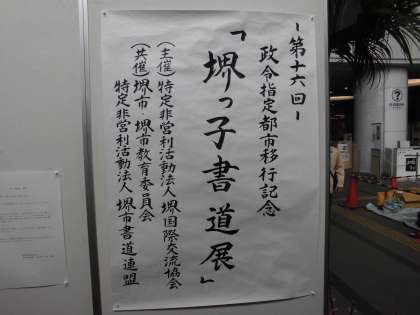 ー第十六回ー
政令指定都市移行記念
「堺っ子書道展」
（主催）特定非営利活動法人 堺国際交流協会
（共催）堺市・堺市教育委員会
特定非営利活動法人 堺市書道連盟